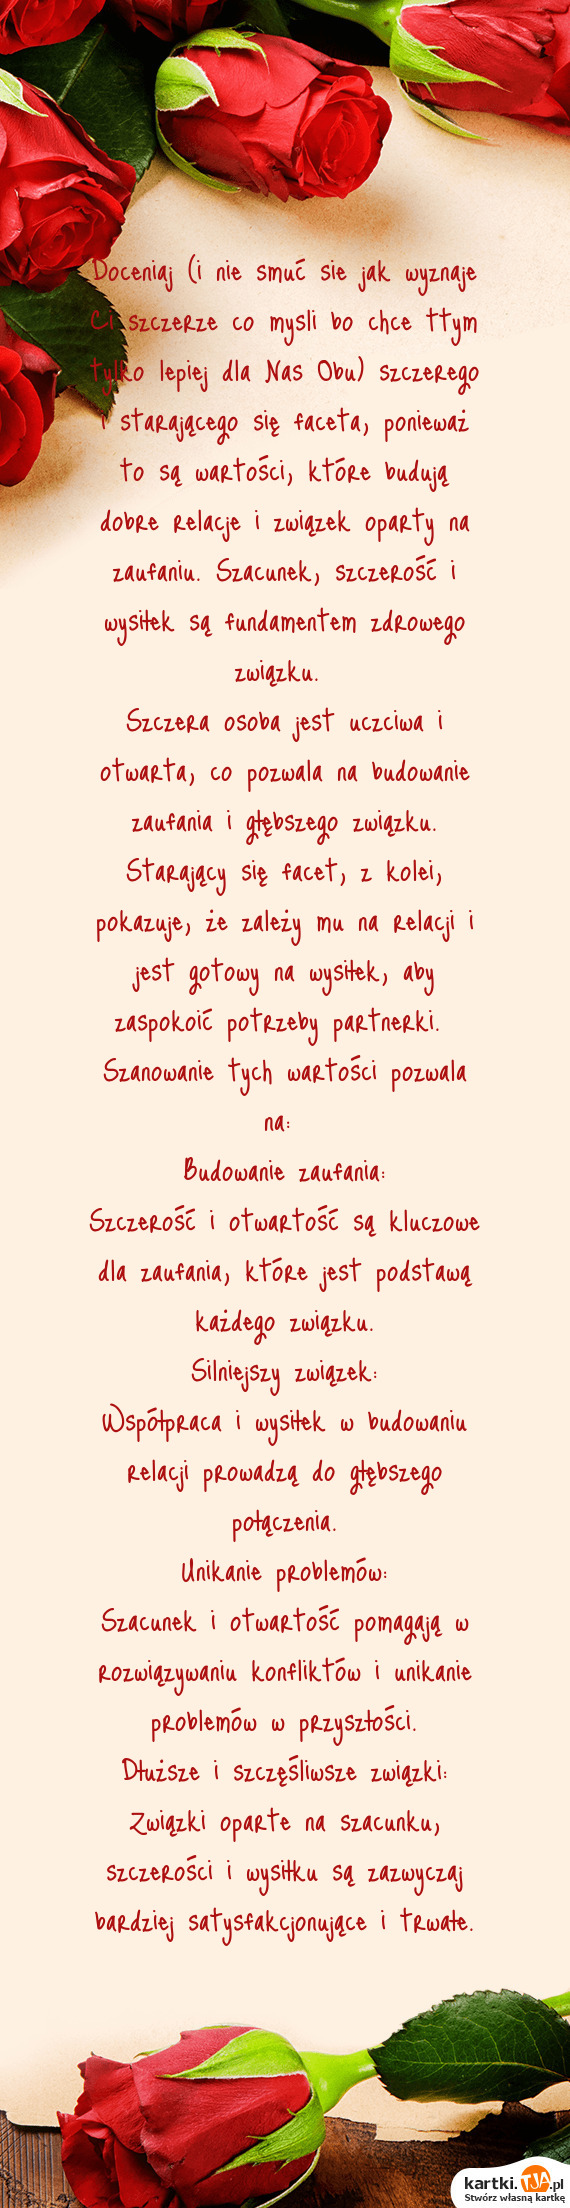 Doceniaj (i nie smuć sie jak wyznaje
Ci szczerze co mysli bo chce ttym
tylko lepiej dla Nas Obu) szczerego
i starającego się faceta, ponieważ
to są wartości, które budują
dobre relacje i związek oparty na
zaufaniu. Szacunek, szczerość i
wysiłek są fundamentem zdrowego
związku.
Szczera osoba jest uczciwa i
otwarta, co pozwala na budowanie
zaufania i głębszego związku.
Starający się facet, z kolei,
pokazuje, że zależy mu na relacji i
jest gotowy na wysiłek, aby
zaspokoić potrzeby partnerki.
Szanowanie tych wartości pozwala
na:
Budowanie zaufania:
Szczerość i otwartość są kluczowe
dla zaufania, które jest podstawą
każdego związku.
Silniejszy związek:
Współpraca i wysiłek w budowaniu
relacji prowadzą do głębszego
połączenia.
Unikanie problemów:
Szacunek i otwartość pomagają w
rozwiązywaniu konfliktów i unikanie
problemów w przyszłości.
Dłuższe i szczęśliwsze związki:
Związki oparte na szacunku,
szczerości i wysiłku są zazwyczaj
bardziej satysfakcjonujące i trwałe.
kartki.TJA.pl
Stwórz własną kartkę